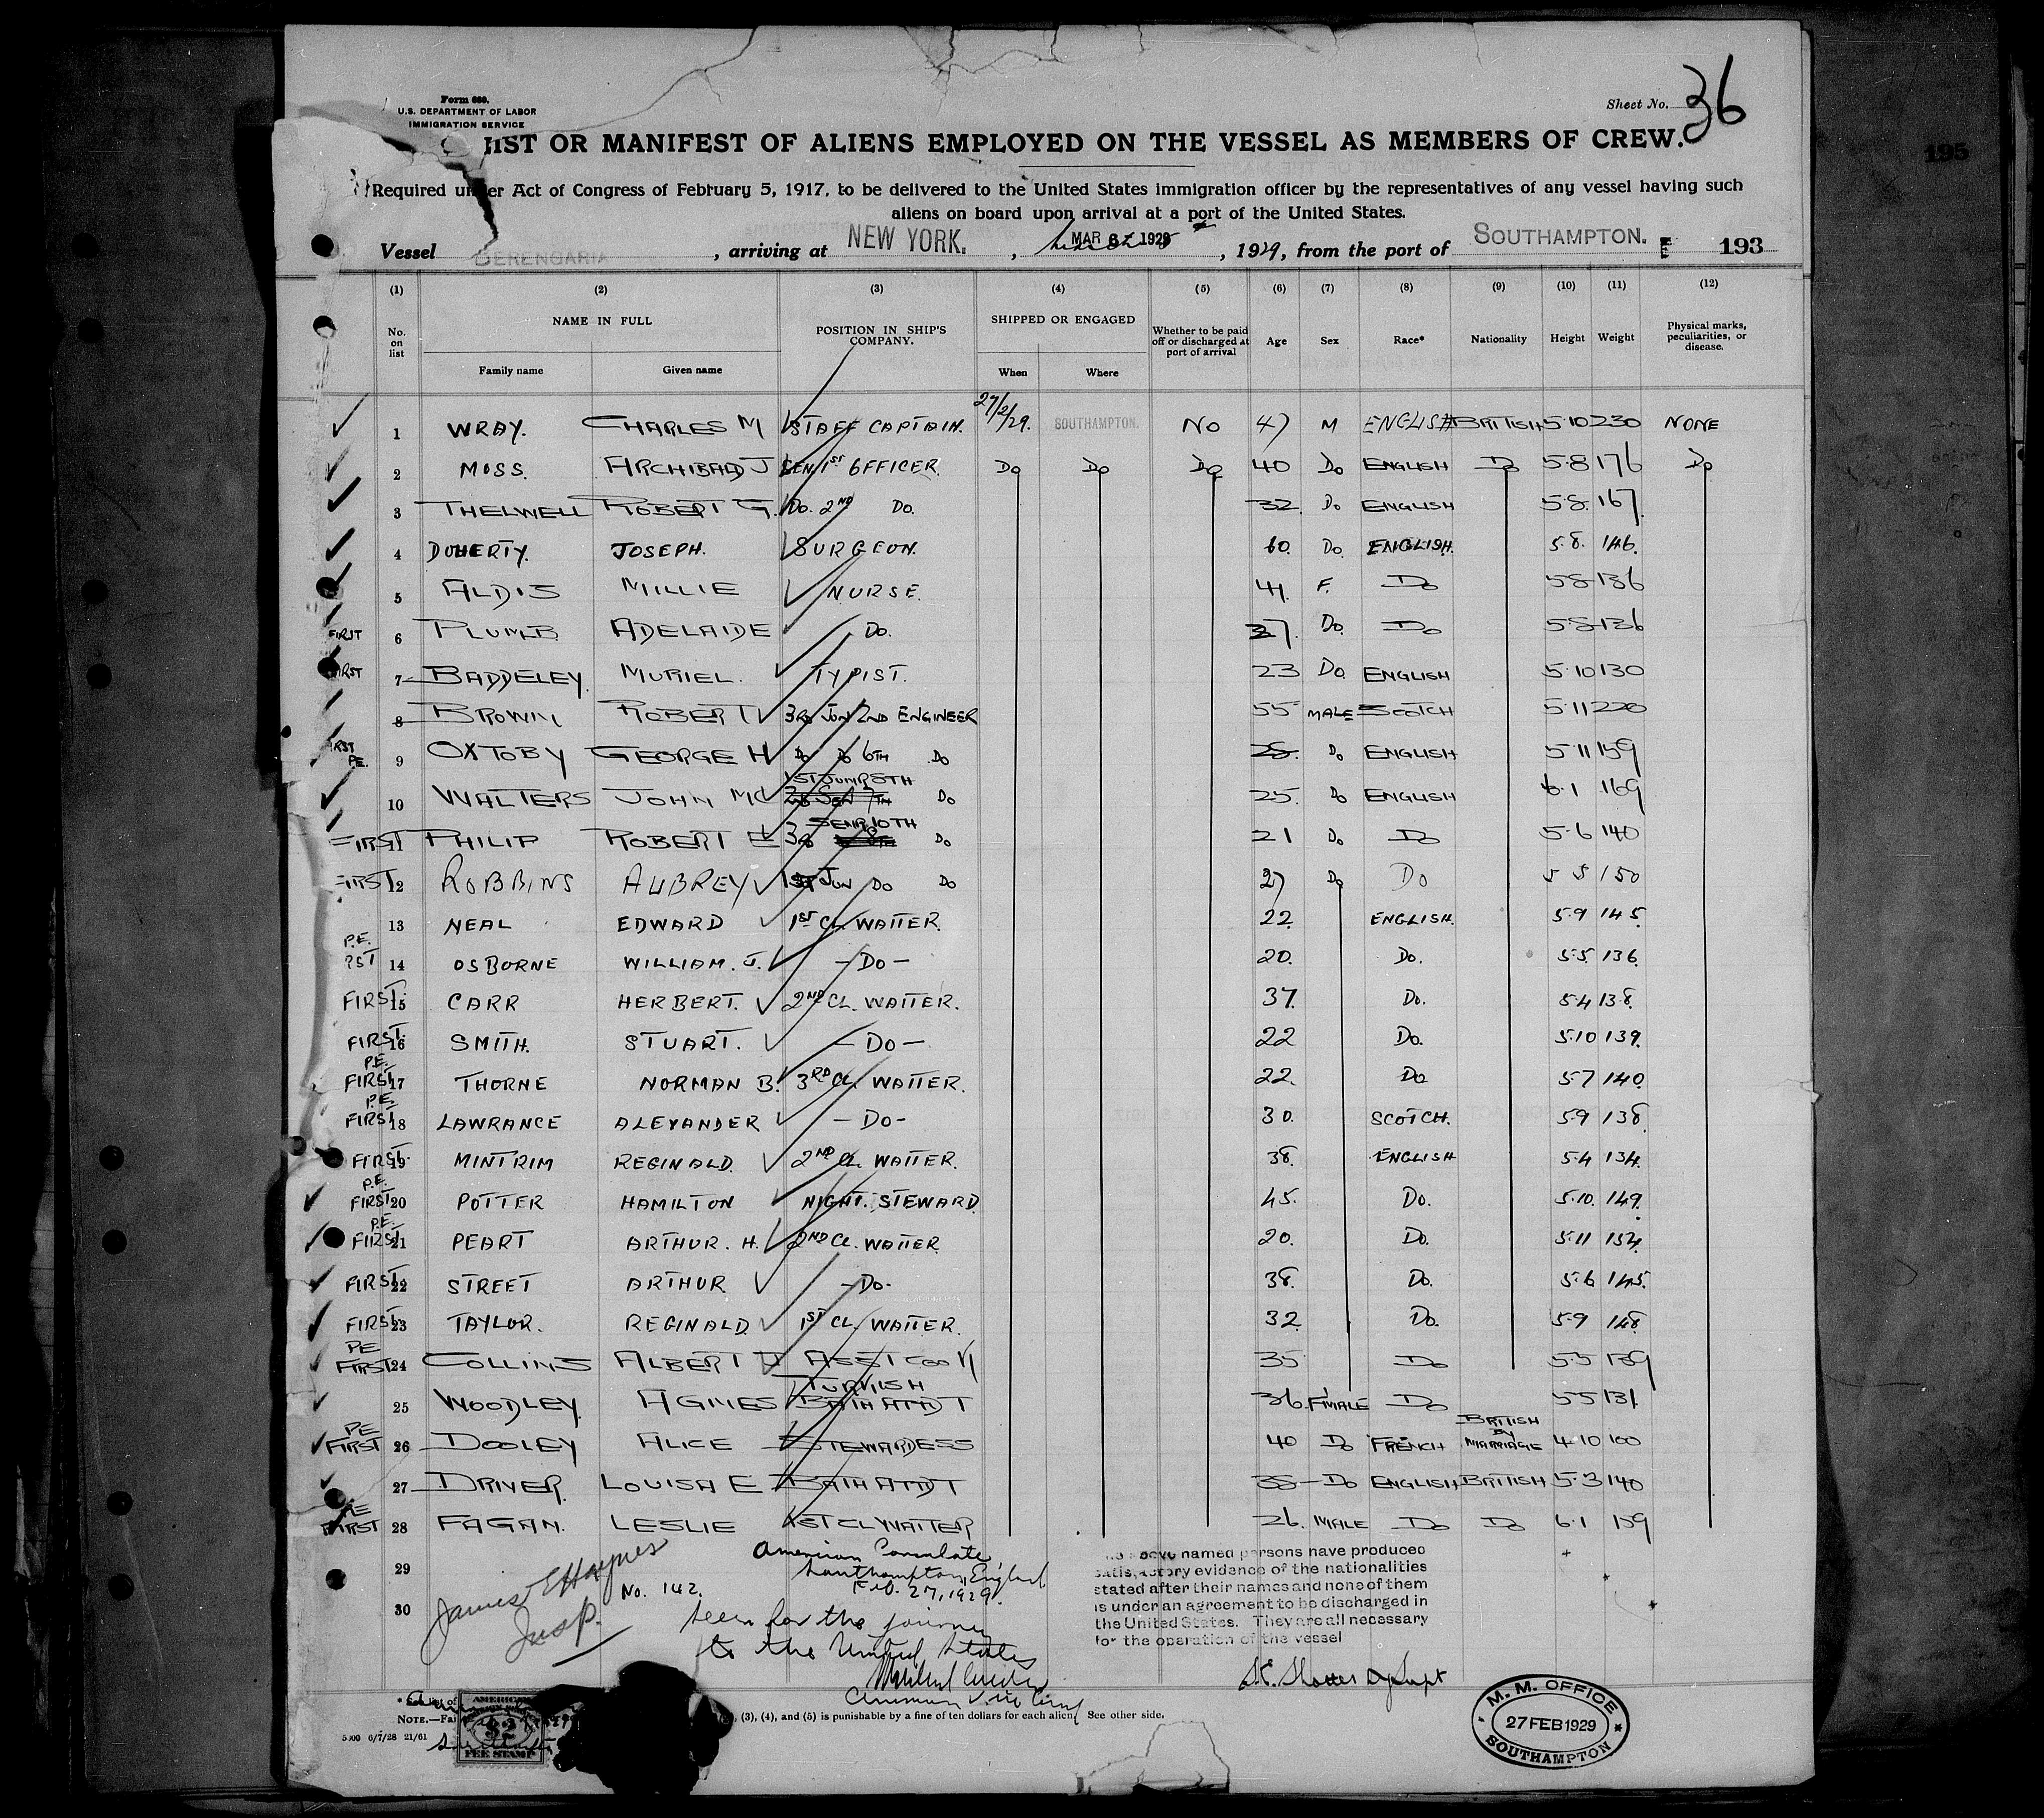 Form 680.
U.S. DEPARTMENT OF LABOR
IMMIGRATION SERVICE
Sheet No. 36
IST OR MANIFEST OF ALIENS EMPLOYED ON THE VESSEL AS MEMBERS OF CREW.
Required under Act of Congress of February 5, 1917, to be delivered to the United States immigration officer by the representatives of any vessel having such
aliens on board upon arrival at a port of the United States.
Vessel BERENGARIA, arriving at NEW YORK., MAR 1929, 1929, from the port of SOUTHAMPTON. E 193
195
(1) (2) (3) (4) (5) (6) (7) (8) (9) (10) (11) (12)
No. on list NAME IN FULL POSITION IN SHIP'S COMPANY. SHIPPED OR ENGAGED Whether to be paid off or discharged at port of arrival Age Sex Race* Nationality Height Weight Physical marks, peculiarities, or disease.
Family name Given name When Where
1 WRAY. CHARLES M STAFF CAPTAIN. 27/2/29. SOUTHAMPTON. NO 47 M ENGLISH BRITISH 5.10 230 NONE
2 MOSS. ARCHIBALD J SEN 1ST OFFICER. DO DO DO 40 DO ENGLISH DO 5.8 176 DO
3 THELWELL ROBERT G. DO. 2ND DO. 32. DO ENGLISH 5.8. 167.
4 DOHERTY. JOSEPH. SURGEON. 60. DO. ENGLISH. 5.8. 146.
5 ALDIS MILLIE NURSE. 41. F. DO 5.8 136
FIRST 6 PLUMB ADELAIDE DO. 37. DO. DO 5.8 136
FIRST 7 BADDELEY. MURIEL. TYPIST. 23 DO ENGLISH 5.10 130
8 BROWN ROBERT 3RD JUN 2ND ENGINEER 55 MALE SCOTCH 5.11 220
FIRST P.E. 9 OXTOBY GEORGE H DO DO 6TH DO 28. DO ENGLISH 5.11 159
10 WALTERS JOHN MC 1ST JUNR 8TH DO 25. DO ENGLISH 6.1 169
FIRST 11 PHILIP ROBERT E 3RD SENR 10TH DO 21 DO DO 5.6 140
FIRST 12 ROBBINS AUBREY 1ST JUN DO DO 27 DO DO 5 5 150
13 NEAL EDWARD 1ST CL. WAITER. 22. ENGLISH. 5.9 145.
P.E. RST 14 OSBORNE WILLIAM. J. -DO- 20. DO. 5.5. 136.
FIRST. 15 CARR HERBERT. 2ND CL. WAITER. 37. DO. 5.4 138.
FIRST. 16 SMITH. STUART. -DO- 22 DO. 5.10 139.
P.E. FIRST 17 THORNE NORMAN B. 3RD CL. WAITER. 22. DO 5.7 140.
P.E. FIRST 18 LAWRANCE ALEXANDER -DO- 30. SCOTCH. 5.9 138.
FIRST. 19 MINTRIM REGINALD. 2ND CL. WAITER. 38. ENGLISH 5.4 134.
P.E. FIRST 20 POTTER HAMILTON NIGHT. STEWARD. 45. DO. 5.10. 149.
P.E. FIRST 21 PEART ARTHUR. H. 2ND CL. WAITER. 20. DO. 5.11 154.
FIRST 22 STREET ARTHUR -DO- 38. DO. 5.6 145.
FIRST 23 TAYLOR. REGINALD. 1ST CL. WAITER. 32 DO. 5.9 148.
PE FIRST 24 COLLINS ALBERT J ASST COOK 35 DO 5.5 139
25 WOODLEY. AGNES TURKISH BATH ATTDT 36. FMALE DO 5.5 131.
PE FIRST 26 DOOLEY ALICE STEWARDESS 40 DO FRENCH BRITISH BY MARRIAGE 4.10 100
27 DRIVER. LOUISA E BATH ATTDT 38 DO ENGLISH BRITISH 5.3 140
PE FIRST 28 FAGAN. LESLIE 1ST CL WAITER 26. MALE DO DO 6.1 159
29
30
James E Haynes
Insp.
No. 142.
American Consulate,
Southampton, England,
Feb. 27, 1929.
Seen for the journey
to the United States
American Vice Consul
above named persons have produced
satisfactory evidence of the nationalities
stated after their names and none of them
is under an agreement to be discharged in
the United States. They are all necessary
for the operation of the vessel
* See list of
NOTE.—Fai , (3), (4), and (5) is punishable by a fine of ten dollars for each alien. See other side.
6/7/28 21/61
AMERICAN
$2
FEE STAMP
M. M. OFFICE
27 FEB 1929
SOUTHAMPTON